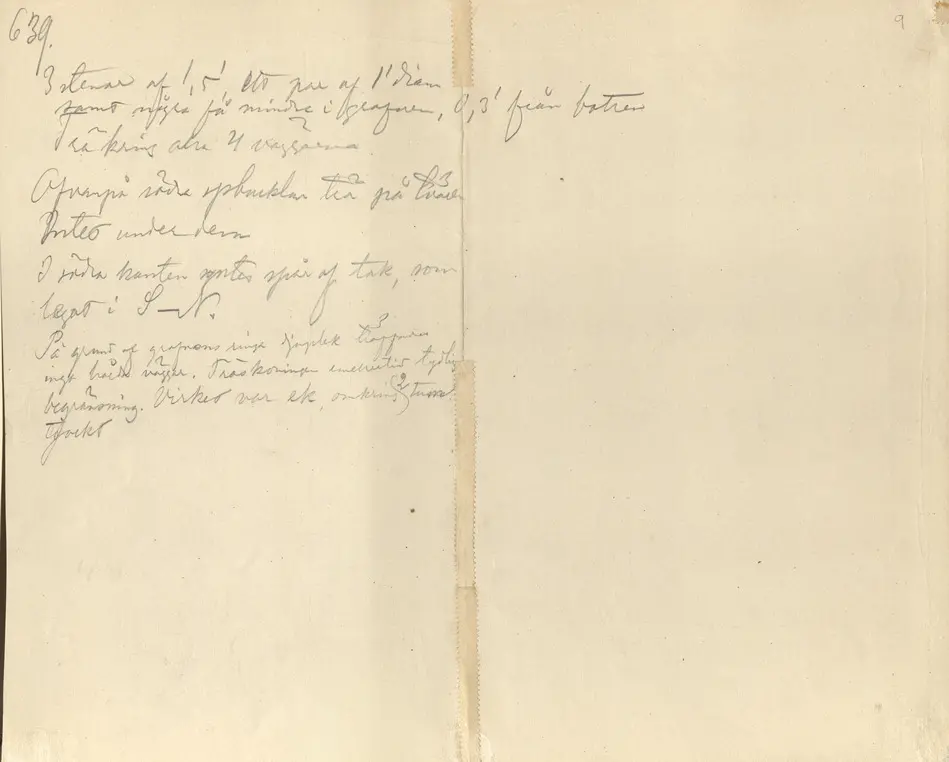 639.
9
3 stenar af 1,5', ett par af 1' diam
samt några få mindre i grafven, 0,3' från botten
så kring alra 4 väggarna
Ofvanpå södra spbucklan trä på tvären
Intet under dem
I södra kanten syntes spår af tak, som
legat i S–N.
På grund af grafvens ringa djuplek
inga väggar. Träskoningen emellertid tydlig
begränsning. Virket var ek, omkring 2 tum
tjockt